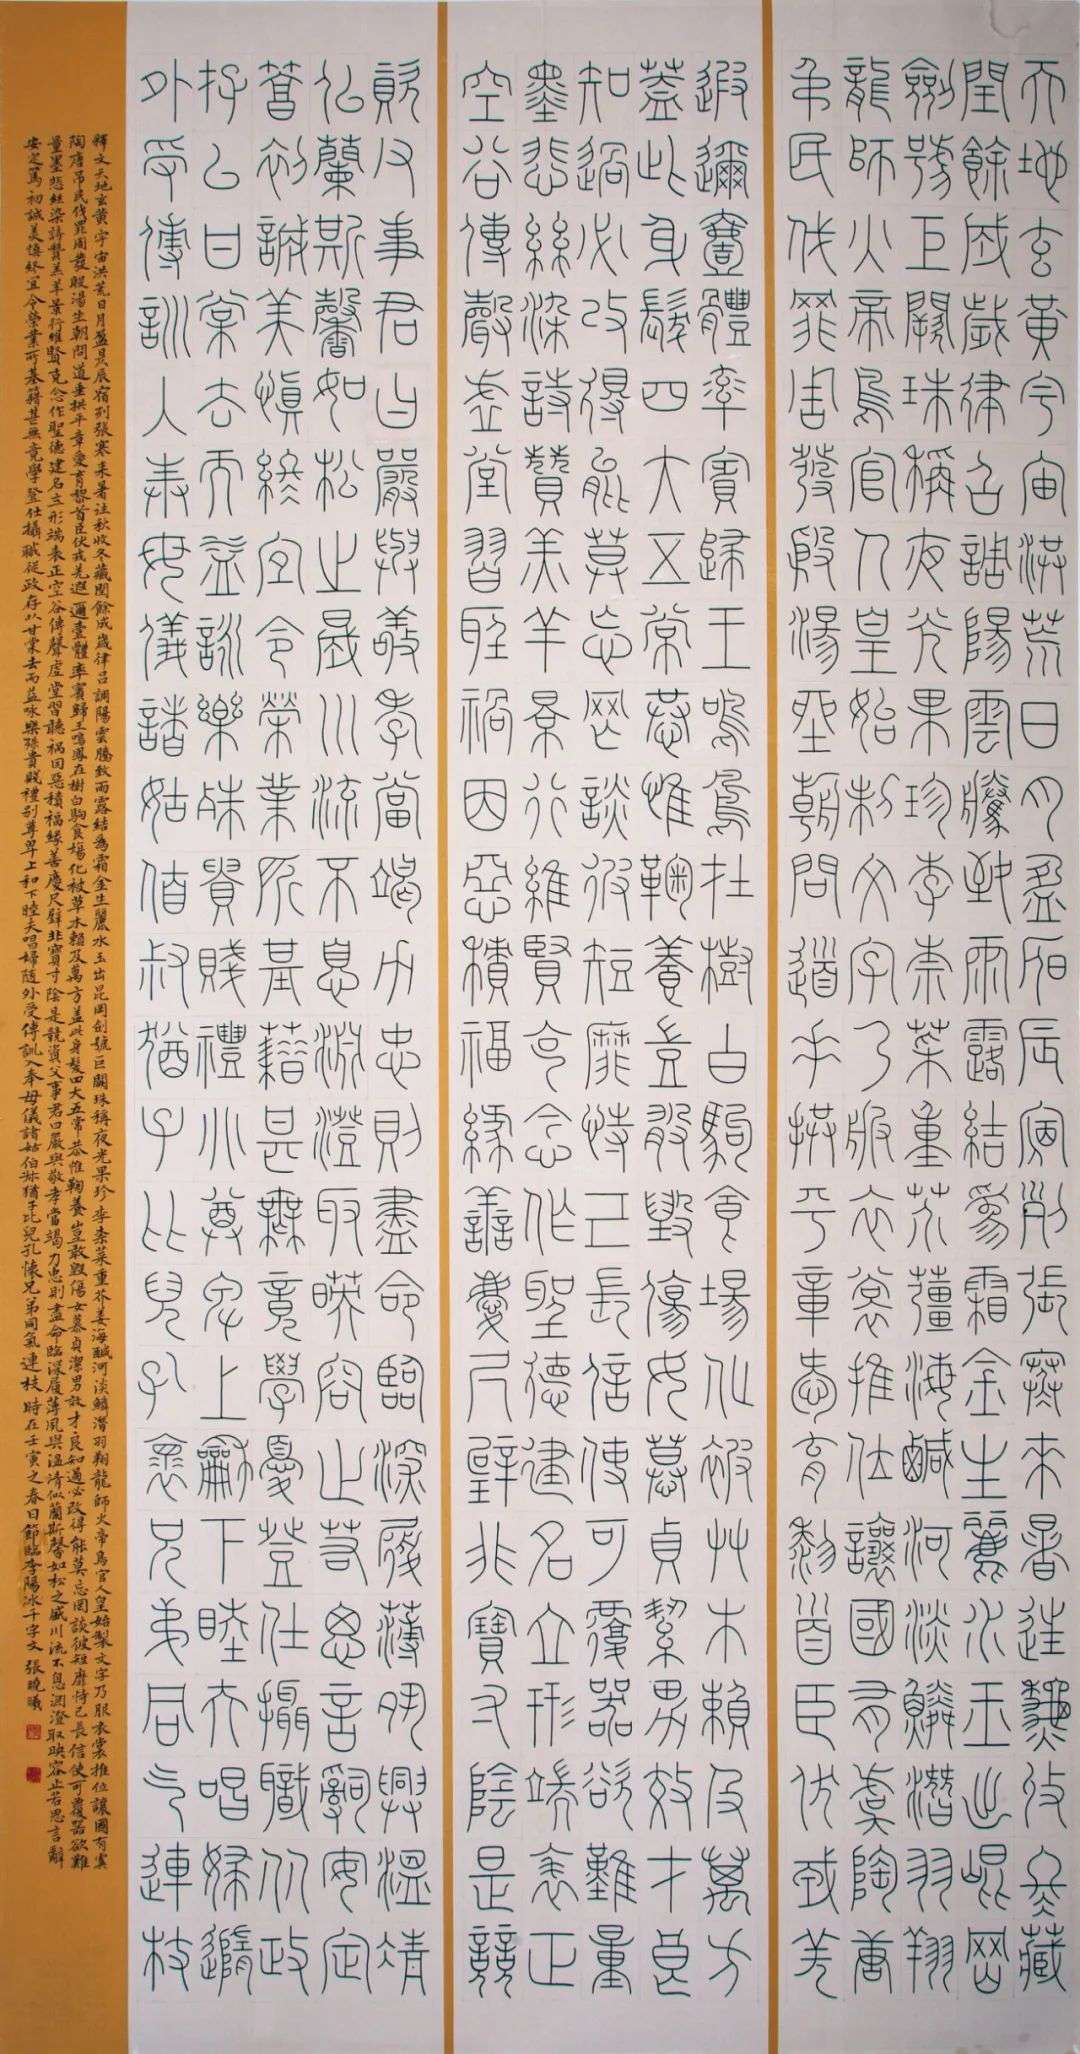 天地玄黃宇宙洪荒日月盈昃辰宿列張寒來暑往秋收冬藏
閏餘成歲律呂調陽雲騰致雨露結為霜金生麗水玉出崐岡
劍號巨闕珠稱夜光果珍李柰菜重芥薑海鹹河淡鱗潛羽翔
龍師火帝鳥官人皇始制文字乃服衣裳推位讓國有虞陶唐
弔民伐罪周發殷湯坐朝問道垂拱平章愛育黎首臣伏戎羌
遐邇壹體率賓歸王鳴鳳在樹白駒食場化被草木賴及萬方
蓋此身髮四大五常恭惟鞠養豈敢毀傷女慕貞潔男效才良
知過必改得能莫忘罔談彼短靡恃己長信使可覆器欲難量
墨悲絲染詩贊羔羊景行維賢克念作聖德建名立形端表正
空谷傳聲虛堂習聽禍因惡積福緣善慶尺璧非寶寸陰是競
資父事君曰嚴與敬孝當竭力忠則盡命臨深履薄夙興溫凊
似蘭斯馨如松之盛川流不息淵澄取映容止若思言辭安定
篤初誠美慎終宜令榮業所基藉甚無竟學優登仕攝職從政
存以甘棠去而益詠樂殊貴賤禮別尊卑上和下睦夫唱婦隨
外受傅訓入奉母儀諸姑伯叔猶子比兒孔懷兄弟同氣連枝
釋文天地玄黃宇宙洪荒日月盈昃辰宿列張寒來暑往秋收冬藏閏餘成歲律呂調陽雲騰致雨露結為霜金生麗水玉出崑岡劍號巨闕珠稱夜光果珍李柰菜重芥姜海鹹河淡鱗潛羽翔龍師火帝鳥官人皇始製文字乃服衣裳推位讓國有虞
陶唐吊民伐罪周發殷湯坐朝問道垂拱平章愛育黎首臣伏戎羌遐邇壹體率賓歸王鳴鳳在樹白駒食場化被草木賴及萬方蓋此身髮四大五常恭惟鞠養豈敢毀傷女慕貞潔男效才良知過必改得能莫忘罔談彼短靡恃己長信使可覆器欲難
量墨悲絲染詩贊羔羊景行維賢克念作聖德建名立形端表正空谷傳聲虛堂習聽禍因惡積福緣善慶尺璧非寶寸陰是競資父事君曰嚴與敬孝當竭力忠則盡命臨深履薄夙興溫清似蘭斯馨如松之盛川流不息淵澄取映容止若思言辭
安定篤初誠美慎終宜令榮業所基籍甚無竟學登仕攝職從政存以甘棠去而益詠樂殊貴賤禮別尊卑上和下睦夫唱婦隨外受傅訓入奉母儀諸姑伯叔猶子比兒孔懷兄弟同氣連枝時在壬寅之春日節臨李陽冰千字文張曉曦